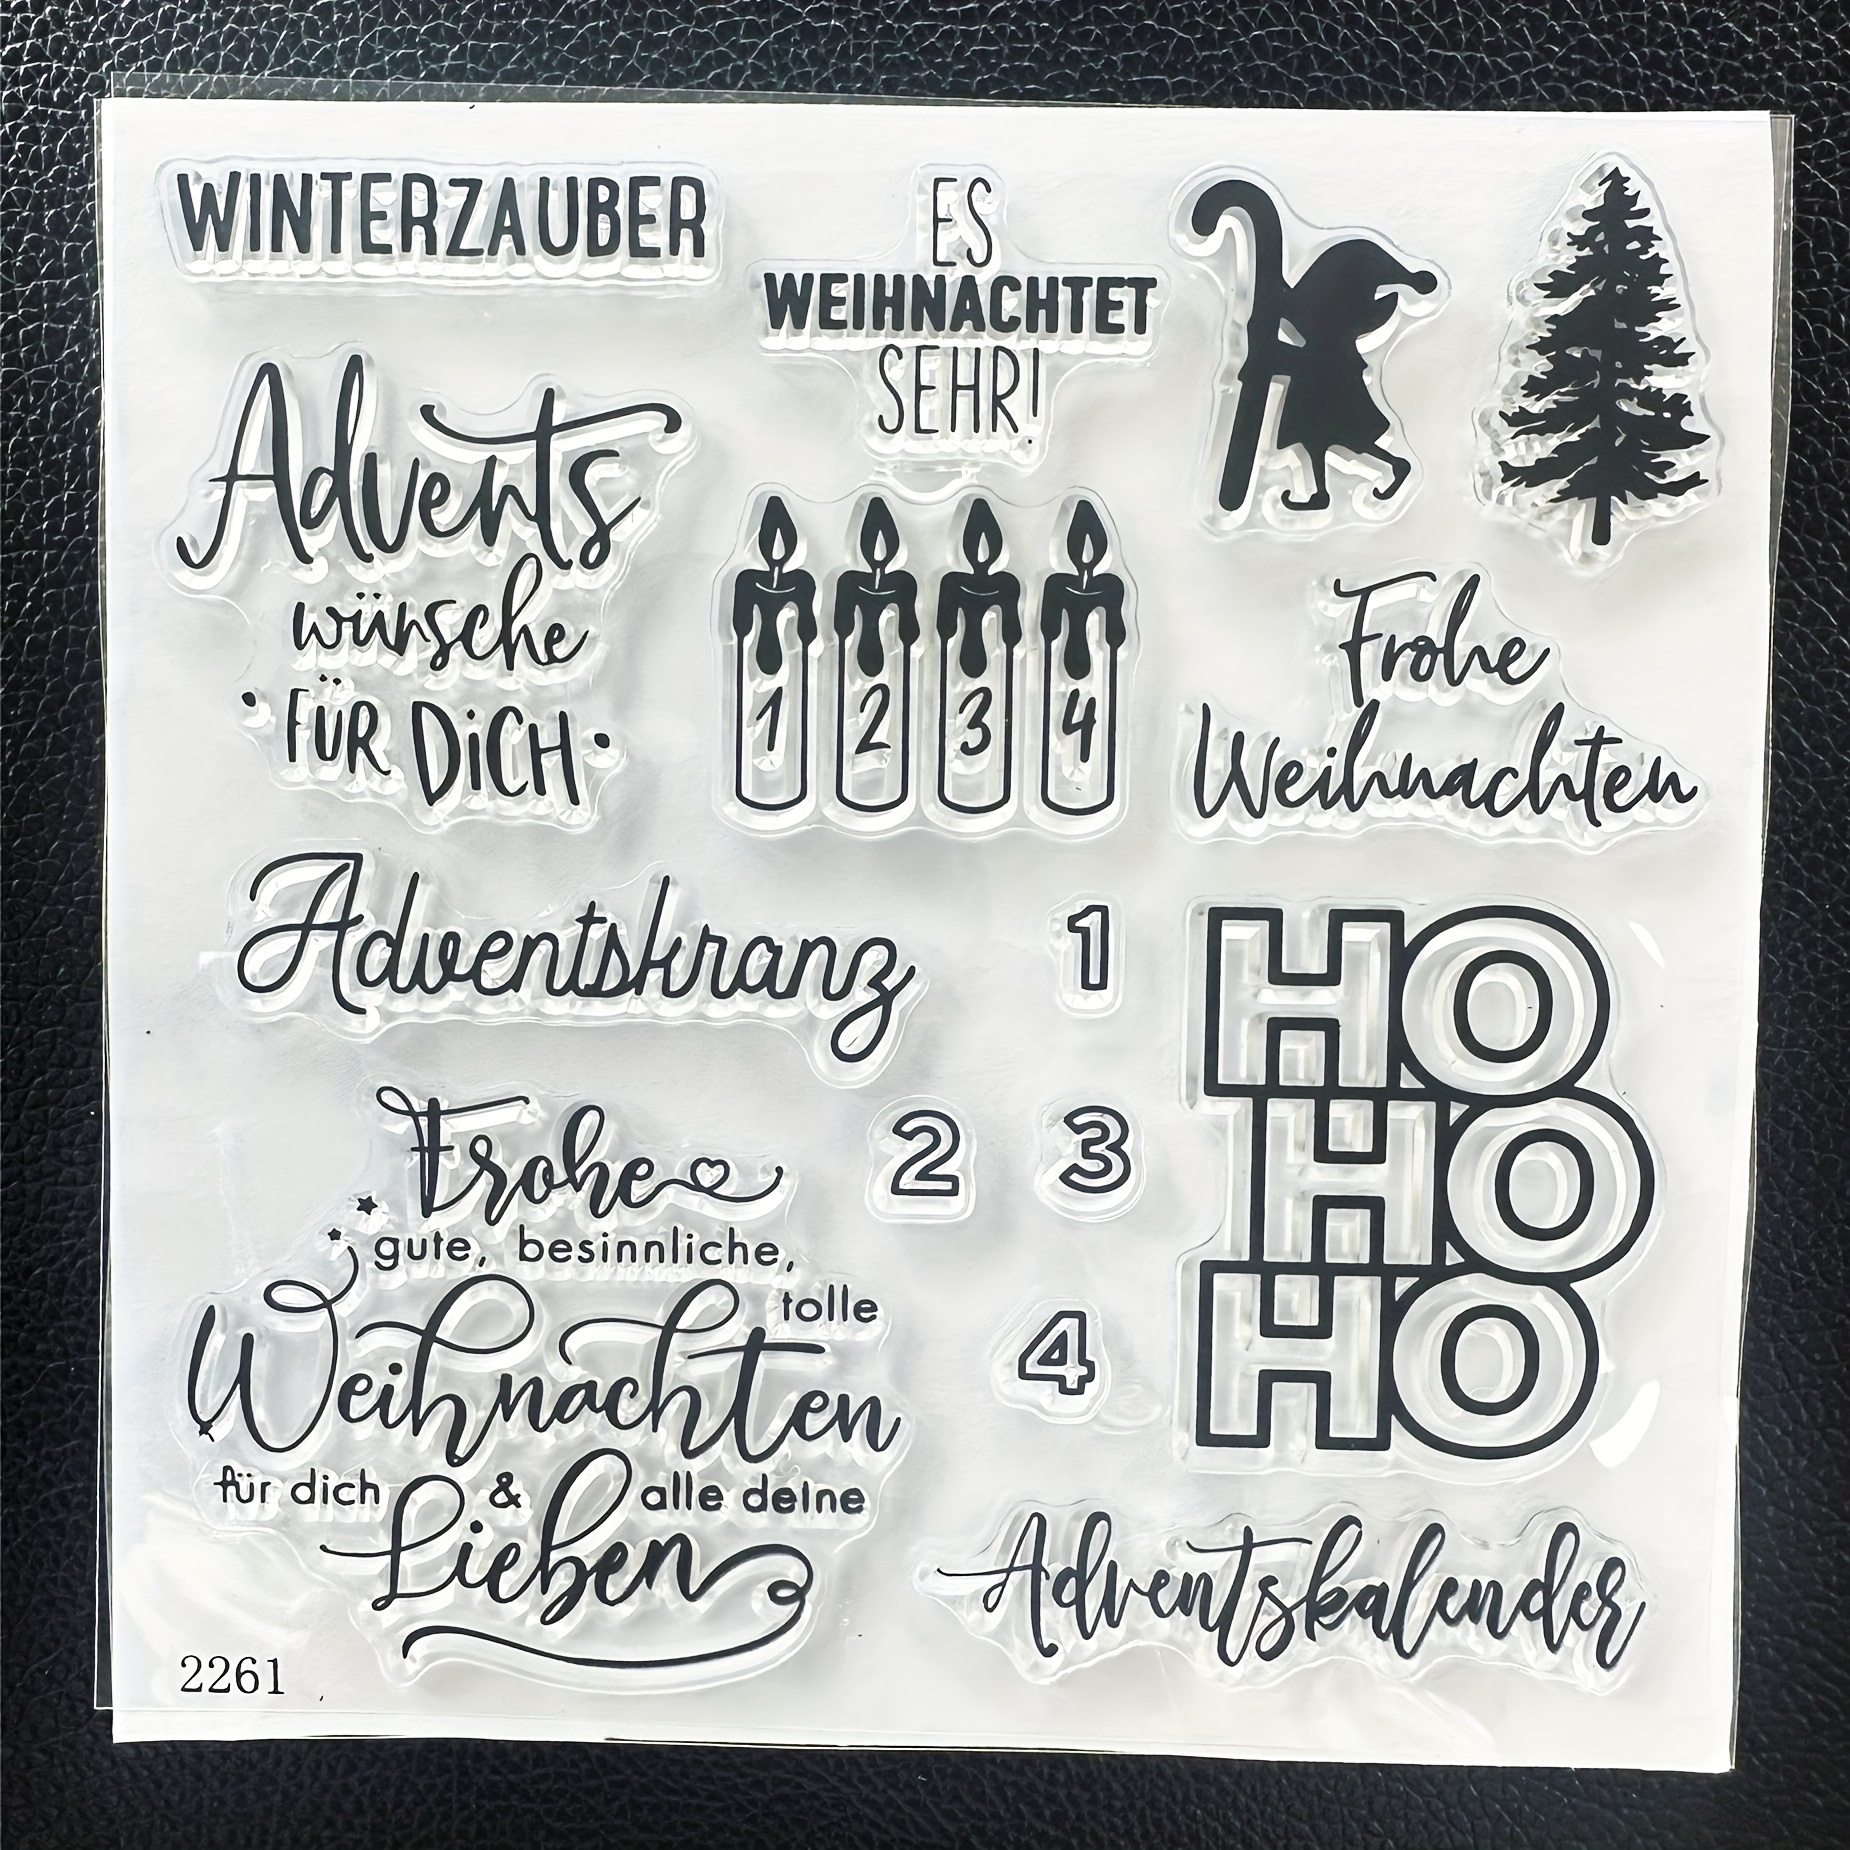 WINTERZAUBER
ES
WEIHNACHTET
SEHR!
Advents
wünsche
FÜR DiCH
1 2 3 4
Frohe
Weihnachten
Adventskranz
1
2 3
4
HO
HO
HO
Frohe
gute, besinnliche,
tolle
Weihnachten
für dich & alle deine
Lieben
Adventskalender
2261